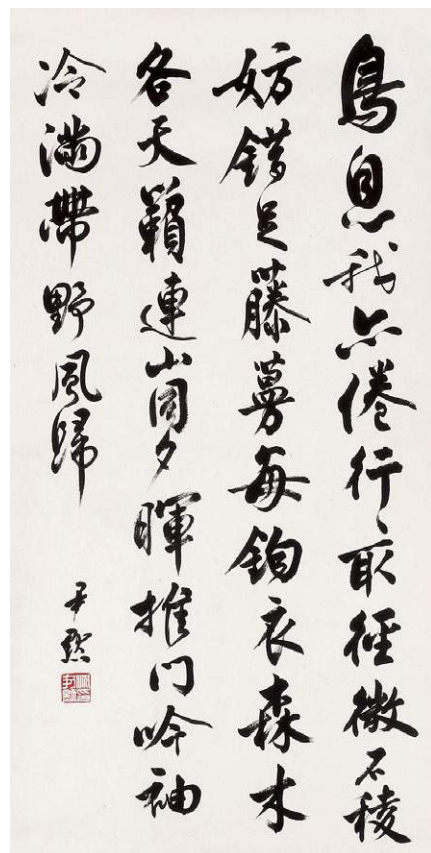 鳥息我亦倦行々取徑微石稜
妨錯足藤蔓每鈎衣森木
各天籟連山同夕暉推門吟袖
冷滿帶野風歸
尹默